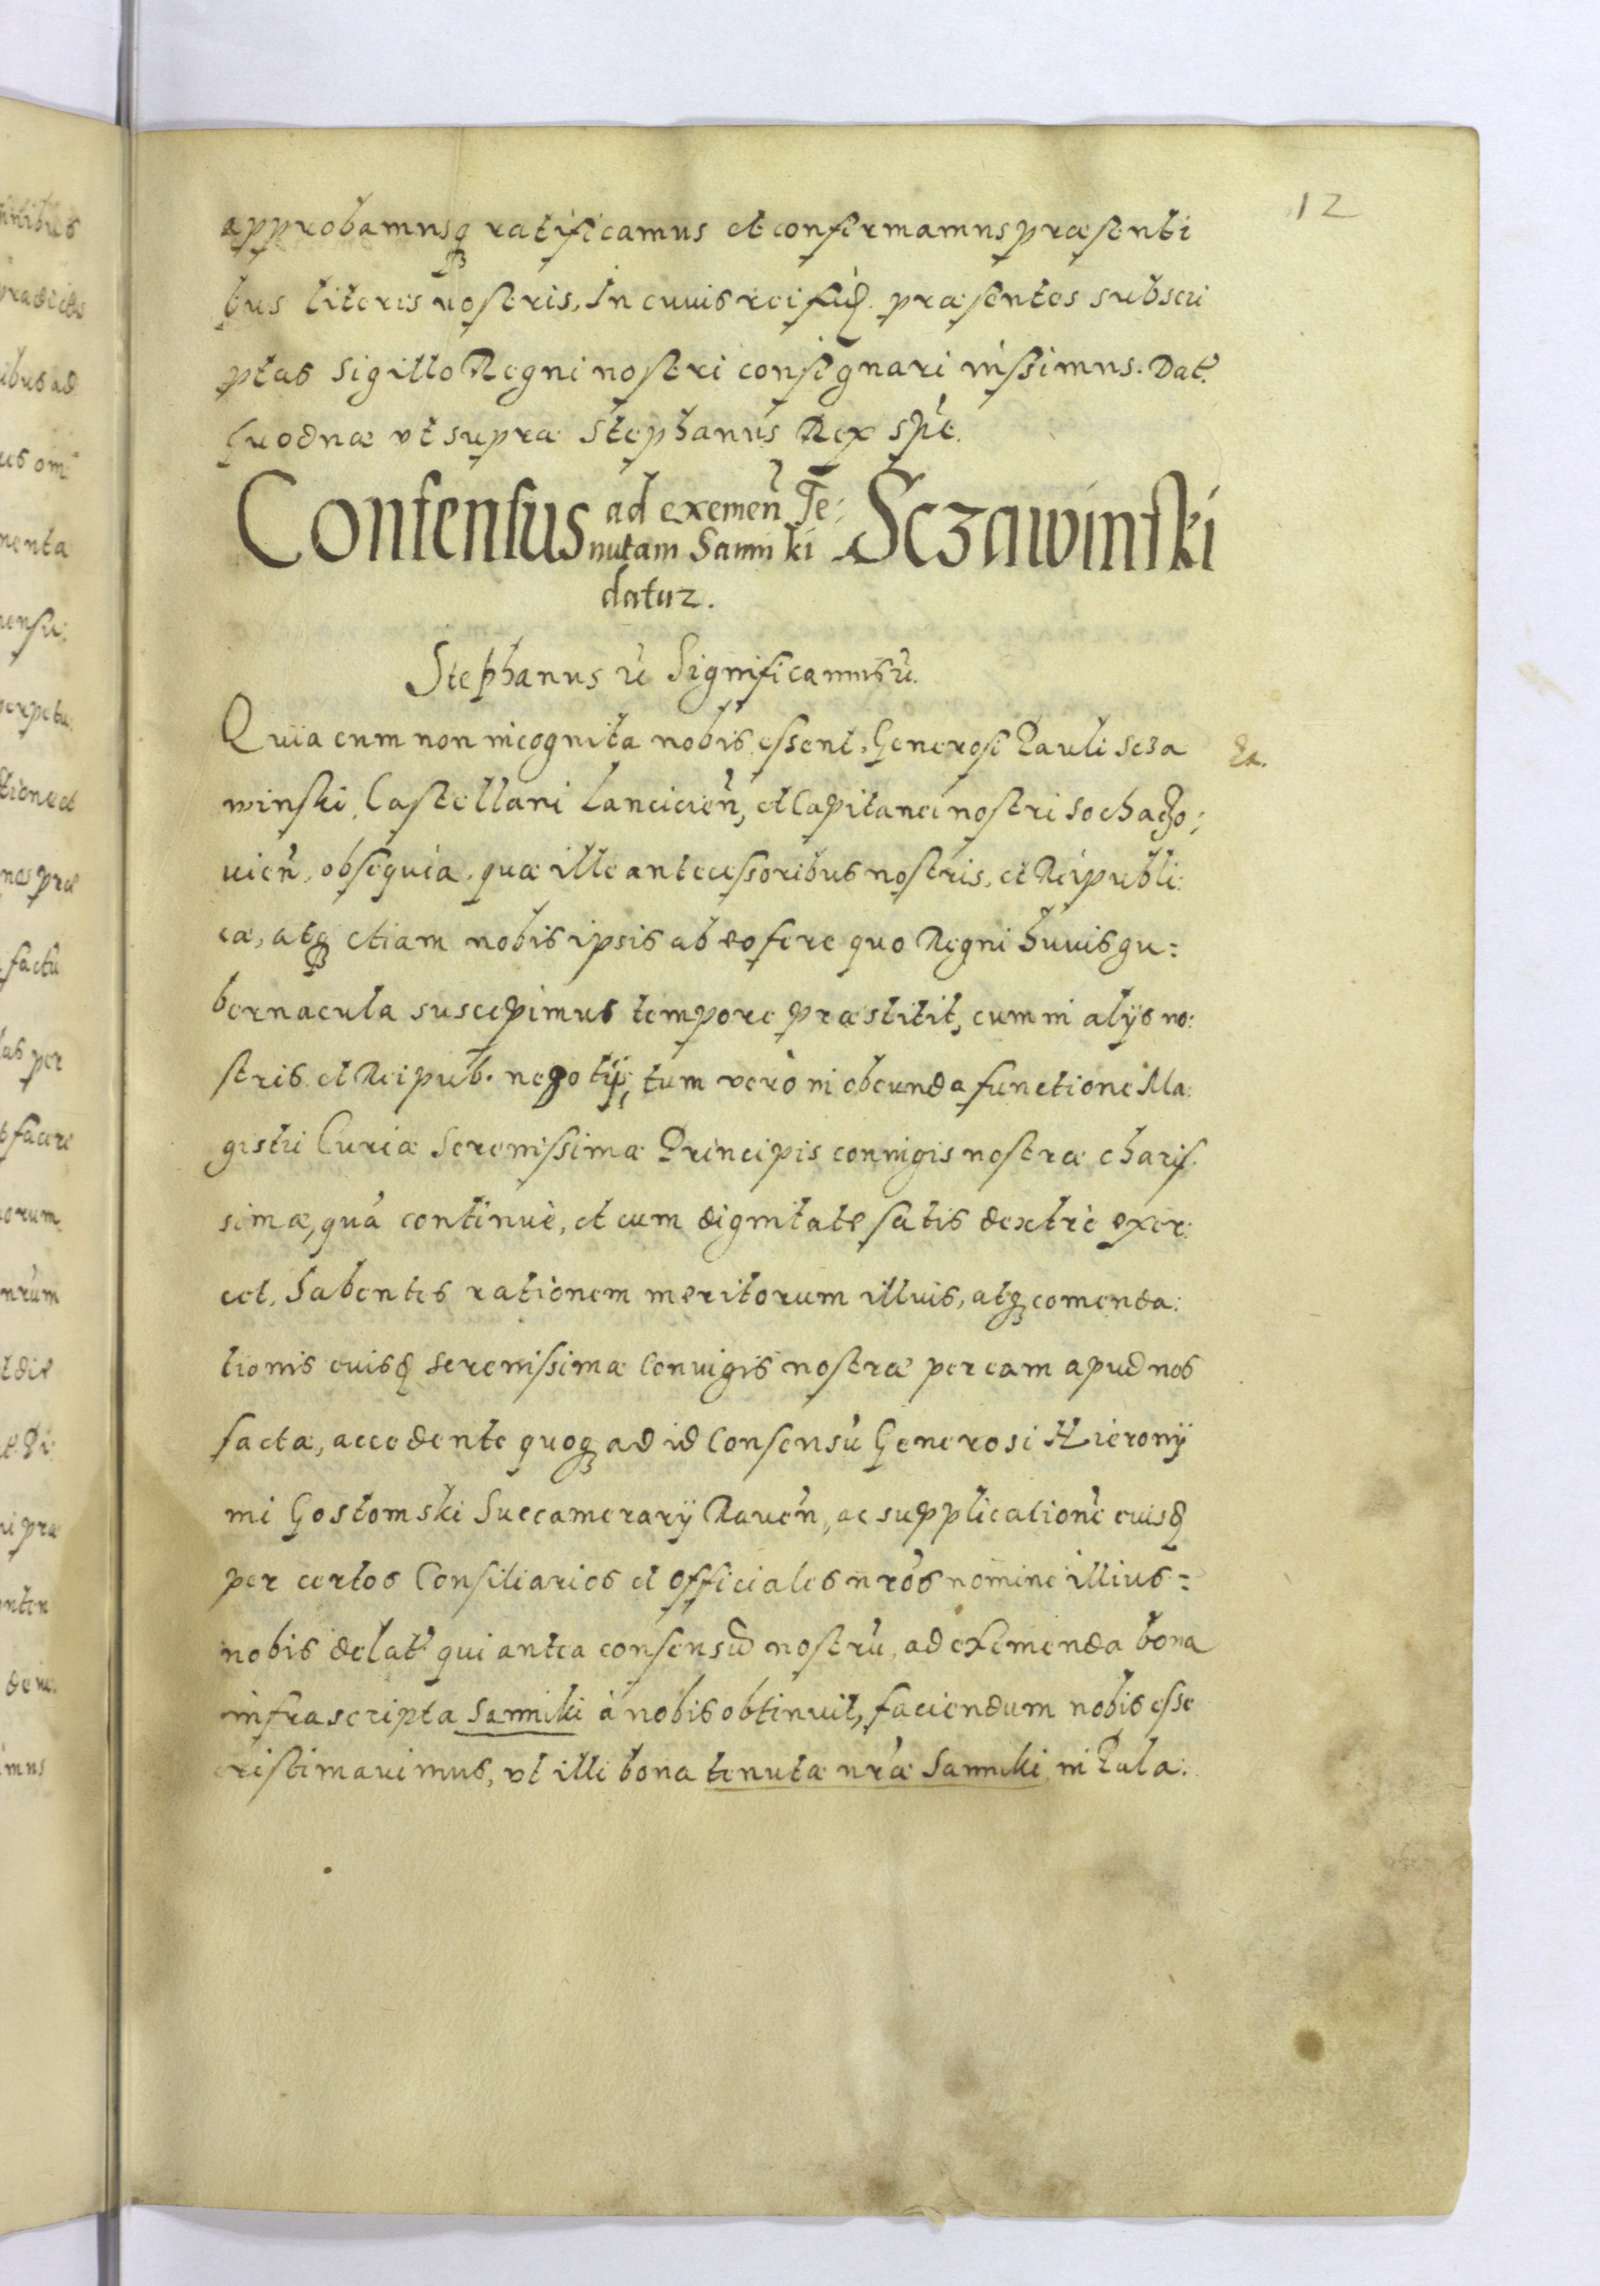 12
approbamusq₃ ratificamus et confirmamus præsenti
bus literis nostris, In cuius rei fid. præsentes subscri
ptas sigillo Regni nostri consignari iussimus. Dat.
Grodnæ vt supra Stephanus Rex sṕt.
Consensus ad eximen̄ Te:
nutam Sanniki Sczawinski
datur.
Stephanus &c Significamus &c.
Quia cum non incognita nobis essent, Generosi Pauli Scza
winski, Castellani Lancicień, et Capitanei nostri Sochaczo:
uień, obsequia, quæ ille antecessoribus nostris, et Reipubli:
cæ, atq₃ etiam nobis ipsis ab eo fere quo Regni huius gu=
bernacula suscepimus tempore præstitit, cum in alijs no:
stris et Reipub. negotijs, tum verò in obeunda functione Ma:
gistri Curiæ Serenissimæ Principis coniugis nostræ charis:
simæ, quá continuè, et cum dignitate satis dextrè exer:
cet. Habentes rationem meritorum illius, atq₃ comenda:
tionis eiusd Serenissimæ Coniugis nostræ per eam apud nos
factæ, accedente quoq₃ ad id Consensu Generosi Hierony
mi Gostomski Succamerarij Raueń, ac supplicatione eiusd
per certos Consiliarios et officiales nr̄os nomine illius=
nobis delat. qui antea consensū nostrū, ad eximenda bona
infrascripta Sanniki à nobis obtinuit, faciendum nobis esse
existimauimus, vt illi bona tenutæ nr̄æ Sanniki in Pala: